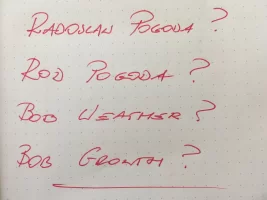 RADOSLAV POGODA ?
ROD POGODA ?
BOB WEATHER ?
BOB GROWTH ?